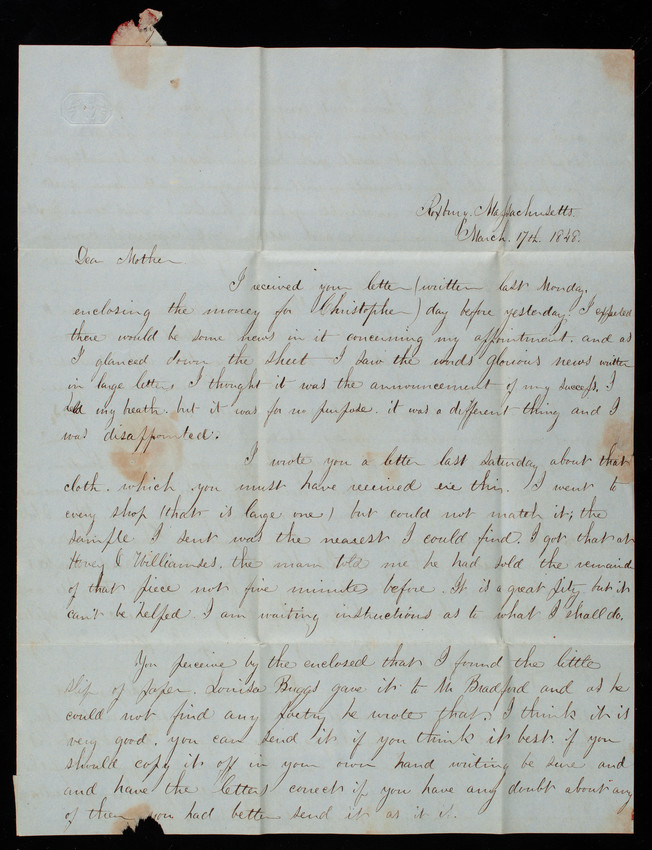 Roxbury. Massachusetts.
March. 17th. 1848.
Dear Mother
I received your letter (written last Monday,
enclosing the money for Christopher) day before yesterday. I expected
there would be some news in it concerning my appointment. and as
I glanced down the sheet I saw the words glorious news written
in large letters I thought it was the announcement of my success. I
held my breath. but it was for no purpose. it was a different thing and I
was disappointed.
I wrote you a letter last Saturday about that
cloth. which you must have received ere this. I went to
every shop (that is large one) but could not match it; the
sample I sent was the nearest I could find. I got that at
Hovey & Williamses. the mam told me he had sold the remain
of that piece not five minutes before. It is a great pity but it
can't be helped I am waiting instructions as to what I shall do.
You perceive by the enclosed that I found the little
slip of paper. Louisa Buggs gave it to Mr Bradford and as he
could not find any poetry he wrote that. I think it is
very good. you can send it if you think it best. if you
should copy it off in your own hand writing be sure and
and have the letters correct if you have any doubt about any
of them you had better send it as it is.